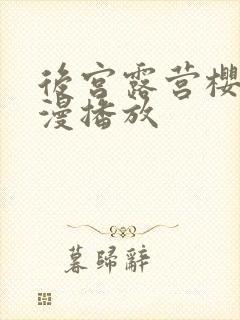 後宮露营櫻
漫播放
暮歸辭